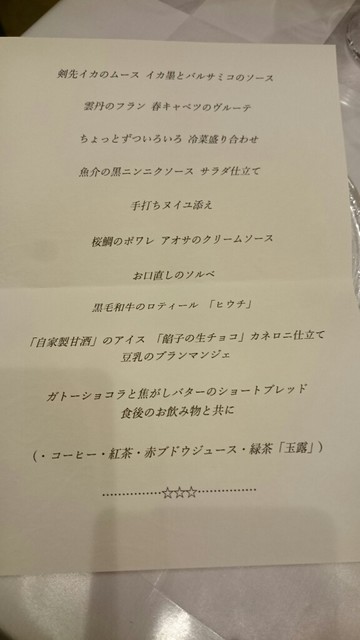 剣先イカのムース イカ墨とバルサミコのソース
雲丹のフラン 春キャベツのヴルーテ
ちょっとずついろいろ 冷菜盛り合わせ
魚介の黒ニンニクソース サラダ仕立て
手打ちヌイユ添え
桜鯛のポワレ アオサのクリームソース
お口直しのソルベ
黒毛和牛のロティール 「ヒウチ」
「自家製甘酒」のアイス 「餡子の生チョコ」カネロニ仕立て
豆乳のブランマンジェ
ガトーショコラと焦がしバターのショートブレッド
食後のお飲み物と共に
(・コーヒー・紅茶・赤ブドウジュース・緑茶「玉露」)
……………☆☆☆……………